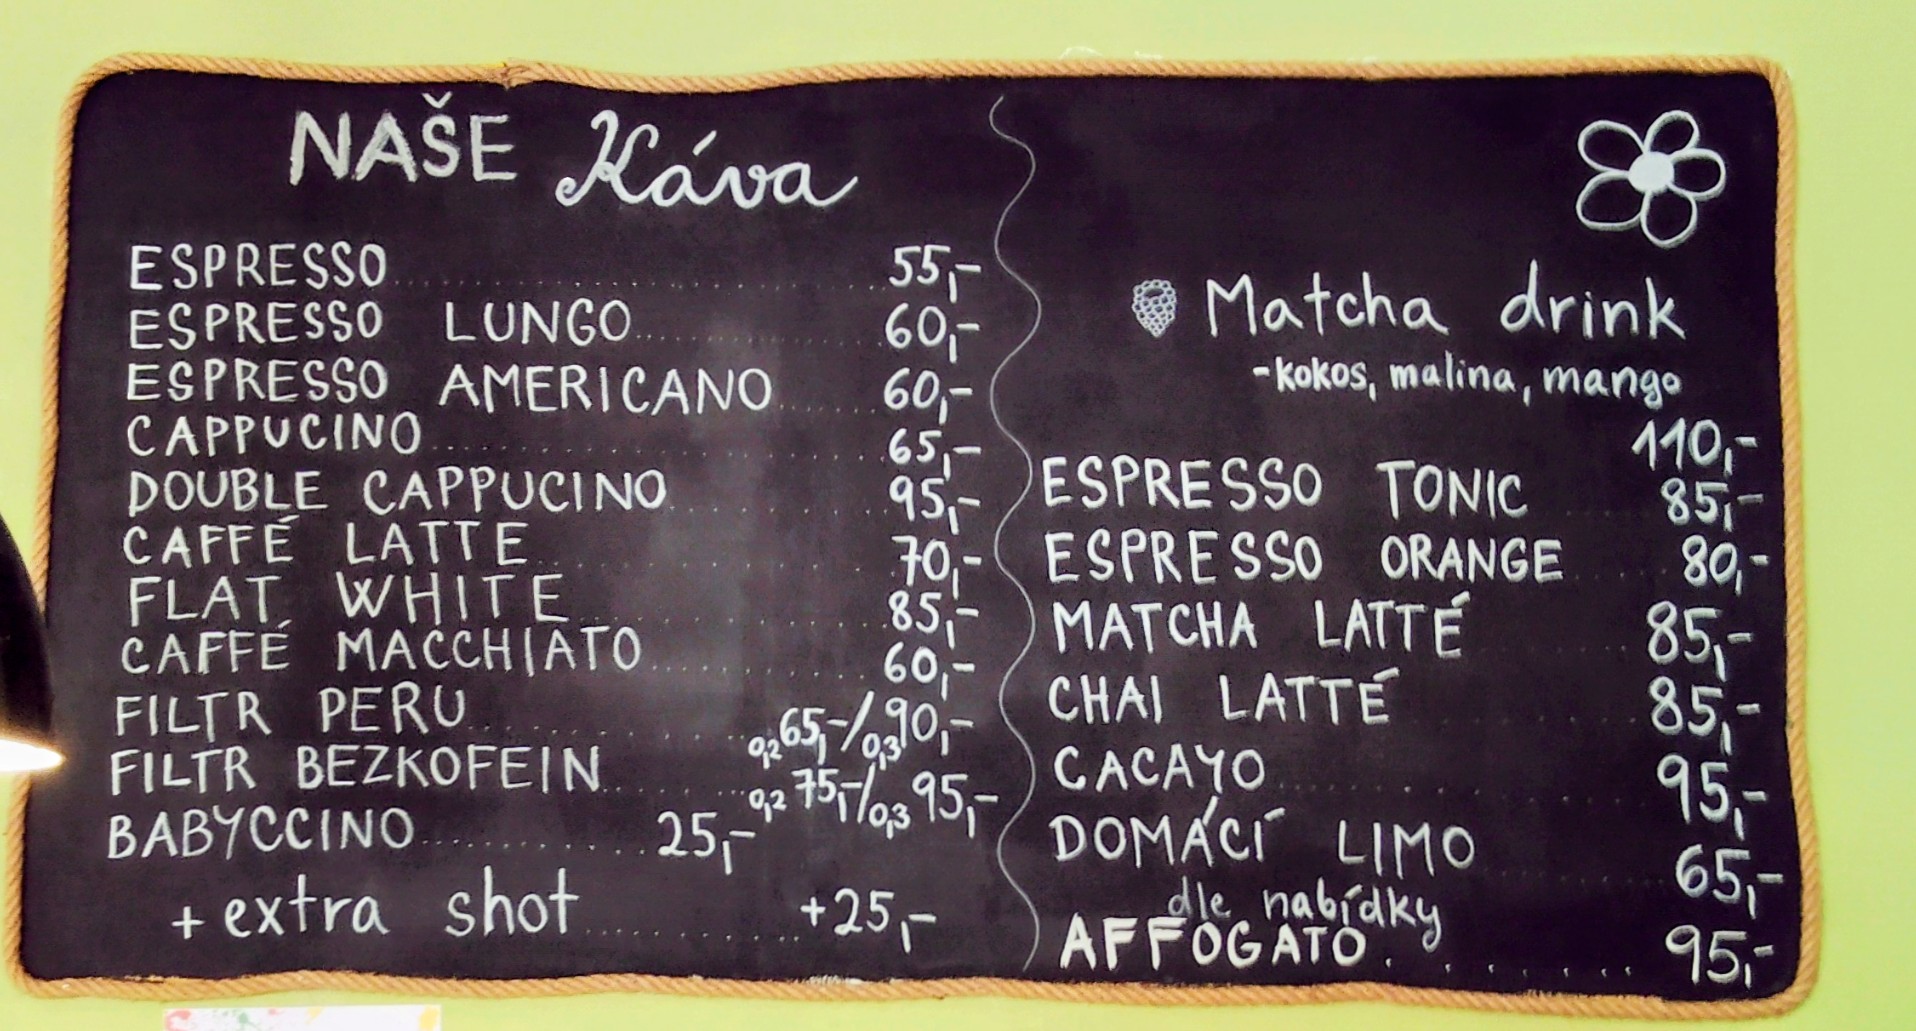 NAŠE Káva
ESPRESSO 55,-
ESPRESSO LUNGO 60,-
ESPRESSO AMERICANO 60,-
CAPPUCINO 65,-
DOUBLE CAPPUCINO 95,-
CAFFÉ LATTE 70,-
FLAT WHITE 85,-
CAFFÉ MACCHIATO 60,-
FILTR PERU 0,2 65,-/0,3 90,-
FILTR BEZKOFEIN 0,2 75,-/0,3 95,-
BABYCCINO 25,-
+ extra shot +25,-
Matcha drink
-kokos, malina, mango
110,-
ESPRESSO TONIC 85,-
ESPRESSO ORANGE 80,-
MATCHA LATTÉ 85,-
CHAI LATTÉ 85,-
CACAYO 95,-
DOMÁCÍ LIMO 65,-
dle nabídky
AFFOGATO 95,-